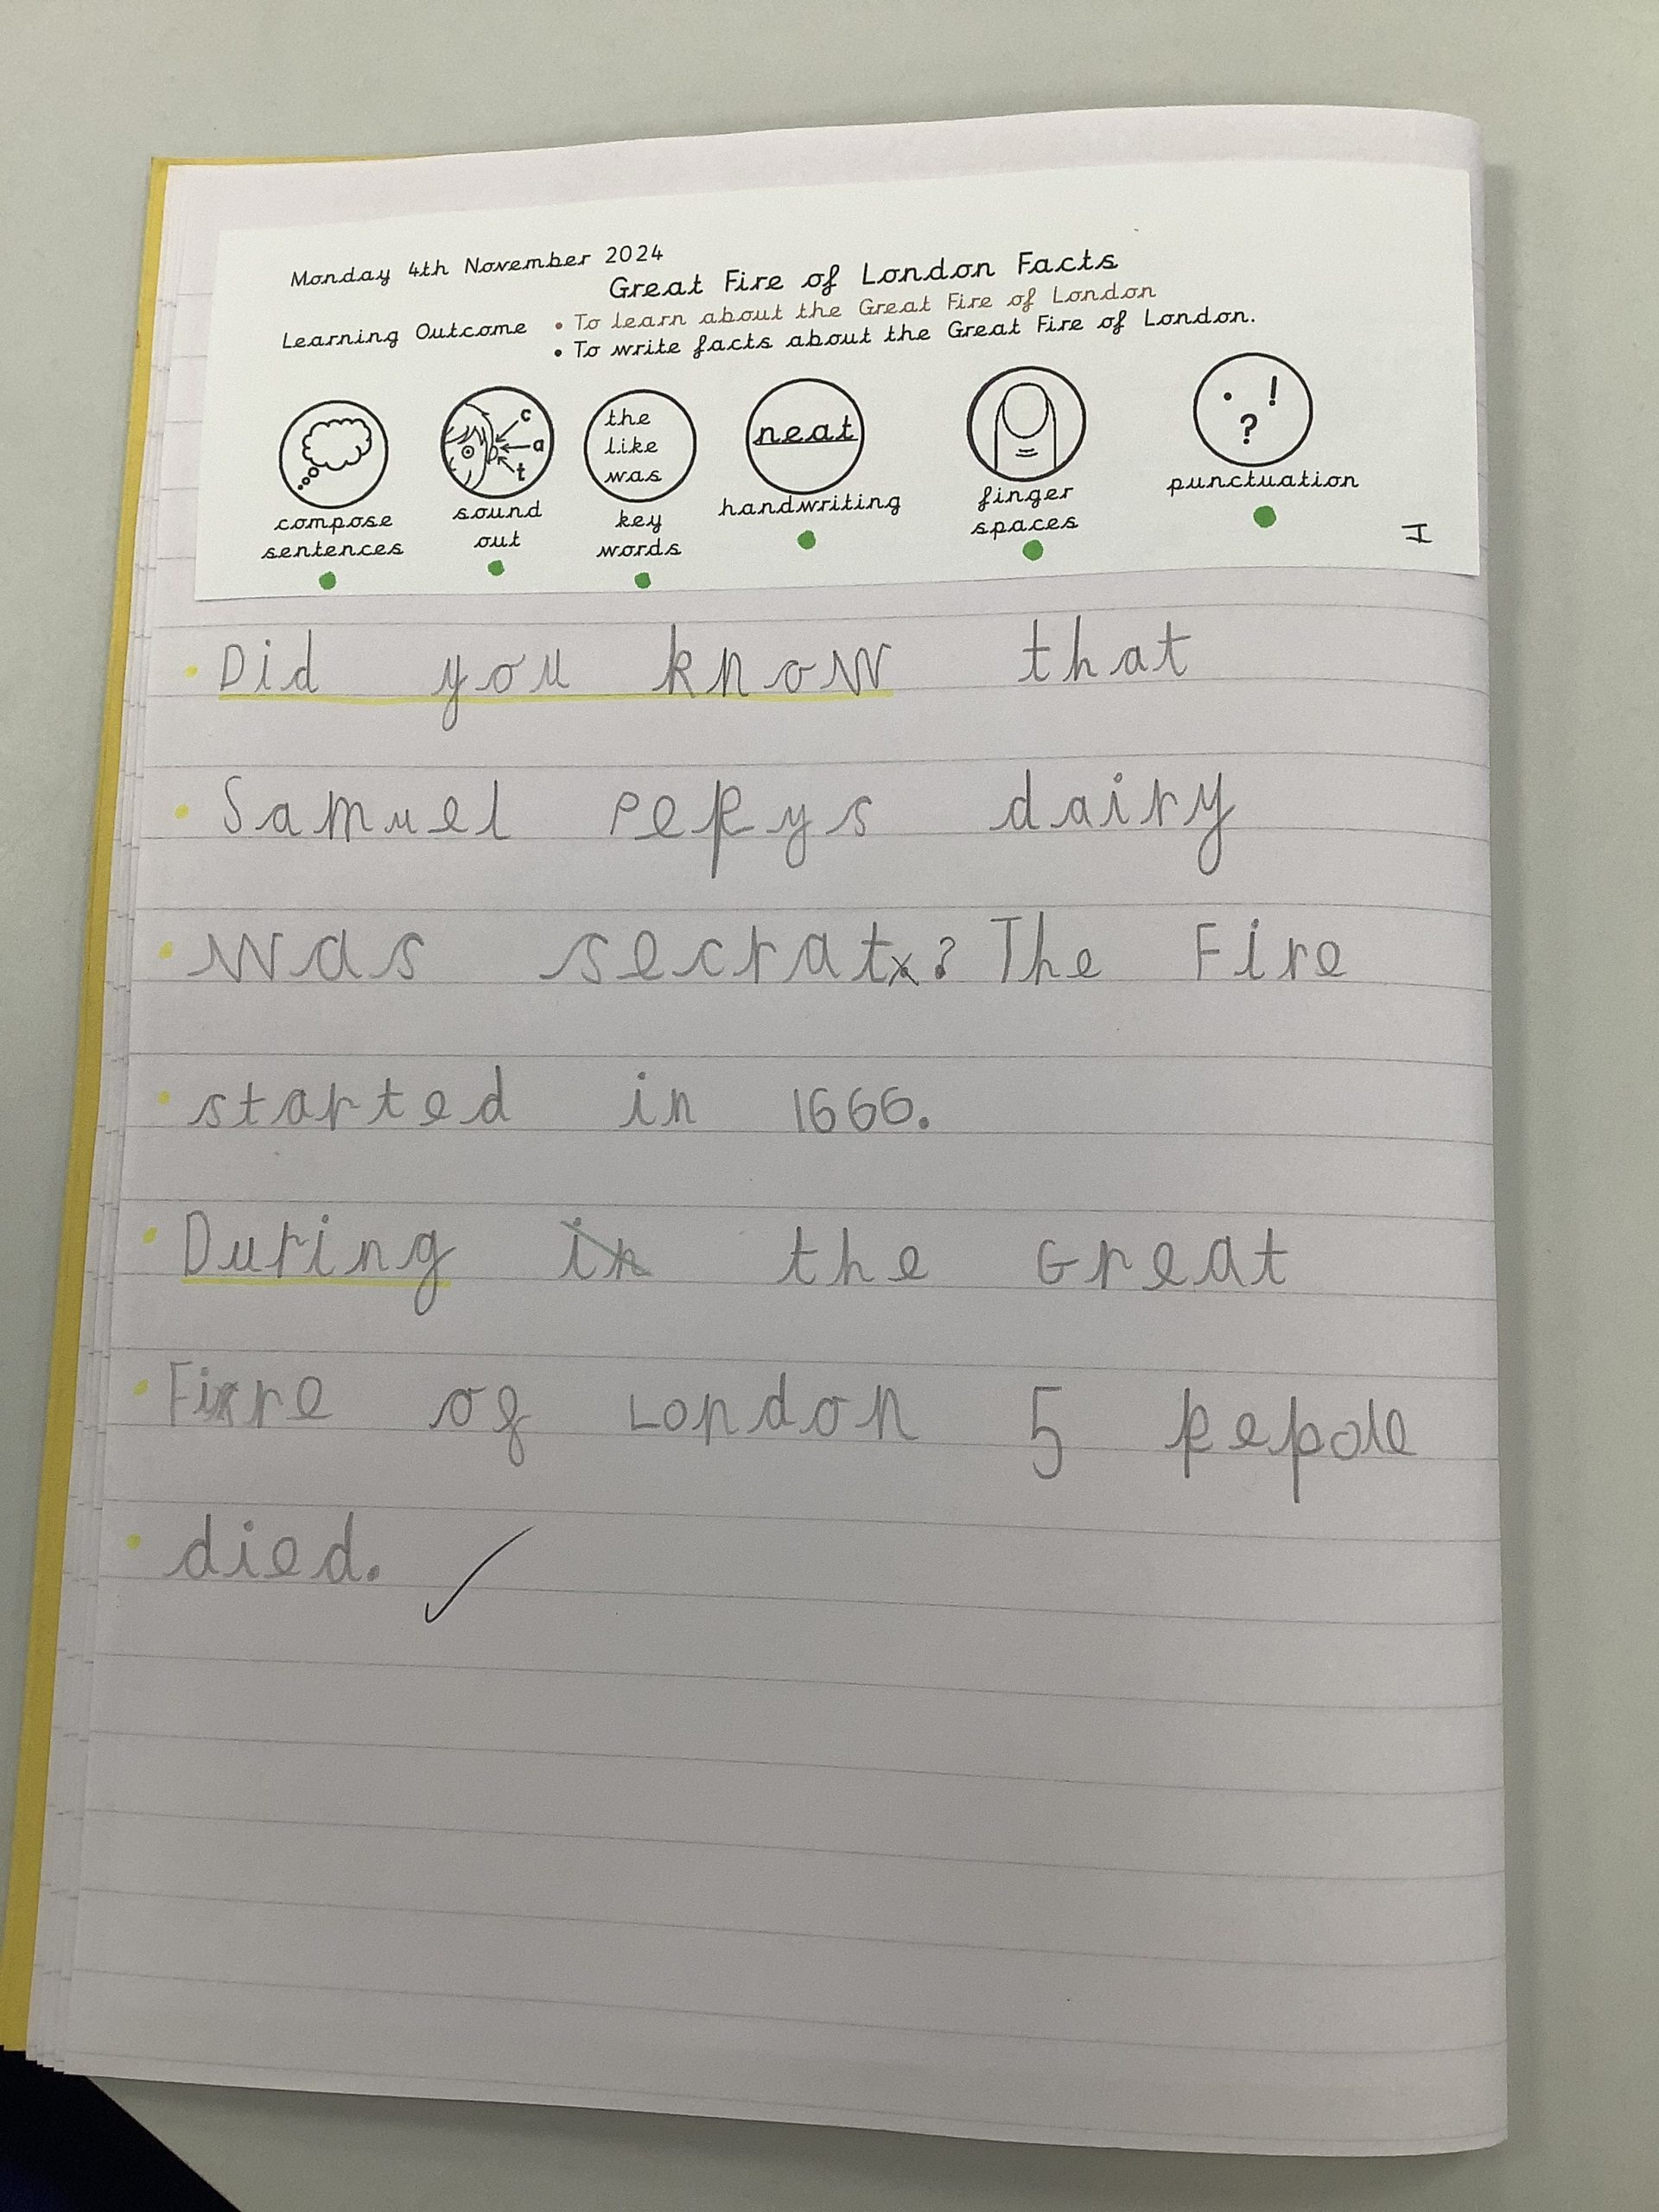 Monday 4th November 2024
Great Fire of London Facts
Learning Outcome • To learn about the Great Fire of London
• To write facts about the Great Fire of London.
c
a
t
the
like
was
neat
. !
?
compose
sentences
sound
out
key
words
handwriting
finger
spaces
punctuation
I
Did you know that
Samuel Pepys dairy
was secrat? The Fire
started in 1666.
During in the Great
Fire of London 5 pepole
died.